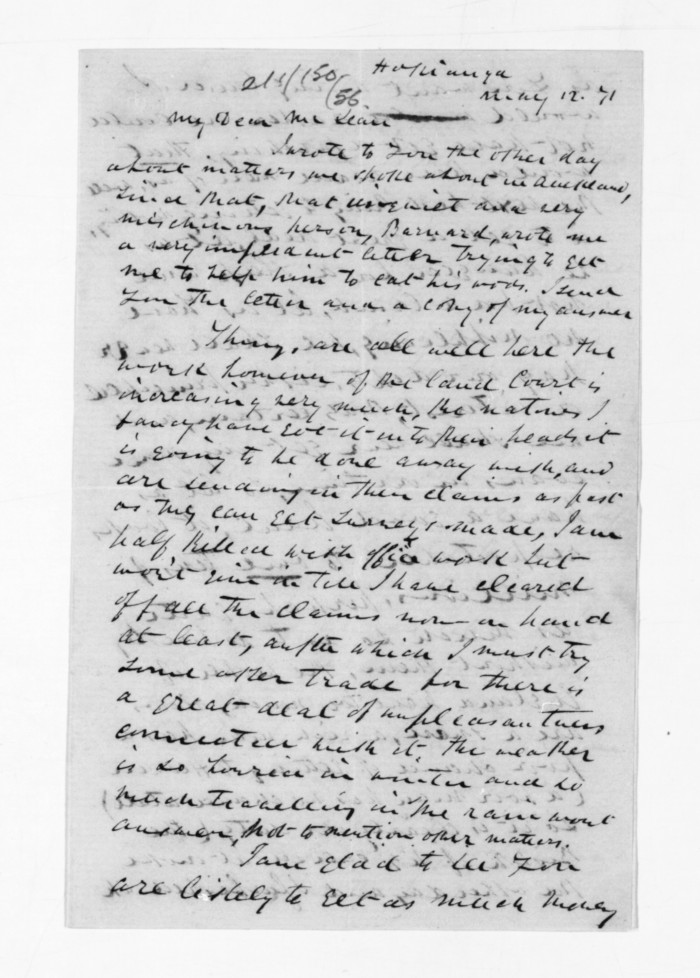 Hokianga
218/150/56
May 12. 71
My Dear Mc Lean
I wrote to you the other day
about matters we spoke about in Auckland,
since that, that unquiet and very
mischinous person, Barnard, wrote me
a very impudent letter trying to get
me to help him to eat his words. I send
you the letter and a copy of my answer
Things are all well here the
work however of the land Court is
increasing very much, the natives I
fancy have got it into their heads it
is going to be done away with, and
are sending in their claims as fast
as they can get surveys made, I am
half killed with office work but
wont give in till I have cleared
off all the claims now on hand
at least, after which I must try
some other trade for there is
a great deal of unpleasantness
connected with it, the weather
is so horrid in winter and so
much travelling in the rain wont
answer, not to mention other matters.
I am glad to see you
are likely to get as much money